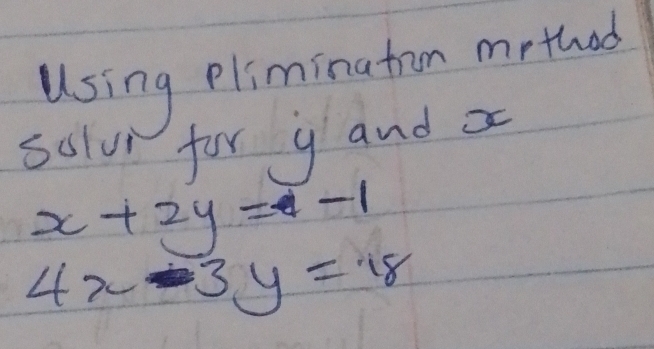 Using elimination method
solve for y and x
x + 2y = -1
4x - 3y = 18